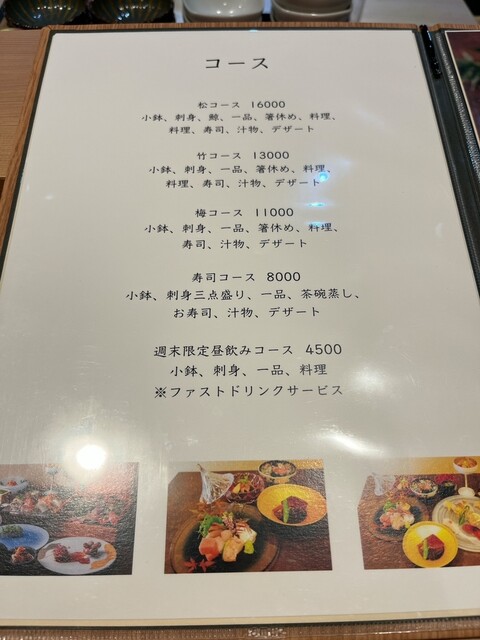 コース
松コース 16000
小鉢、刺身、鯨、一品、箸休め、料理、
料理、寿司、汁物、デザート
竹コース 13000
小鉢、刺身、一品、箸休め、料理、
料理、寿司、汁物、デザート
梅コース 11000
小鉢、刺身、一品、箸休め、料理、
寿司、汁物、デザート
寿司コース 8000
小鉢、刺身三点盛り、一品、茶碗蒸し、
お寿司、汁物、デザート
週末限定昼飲みコース 4500
小鉢、刺身、一品、料理
※ファストドリンクサービス